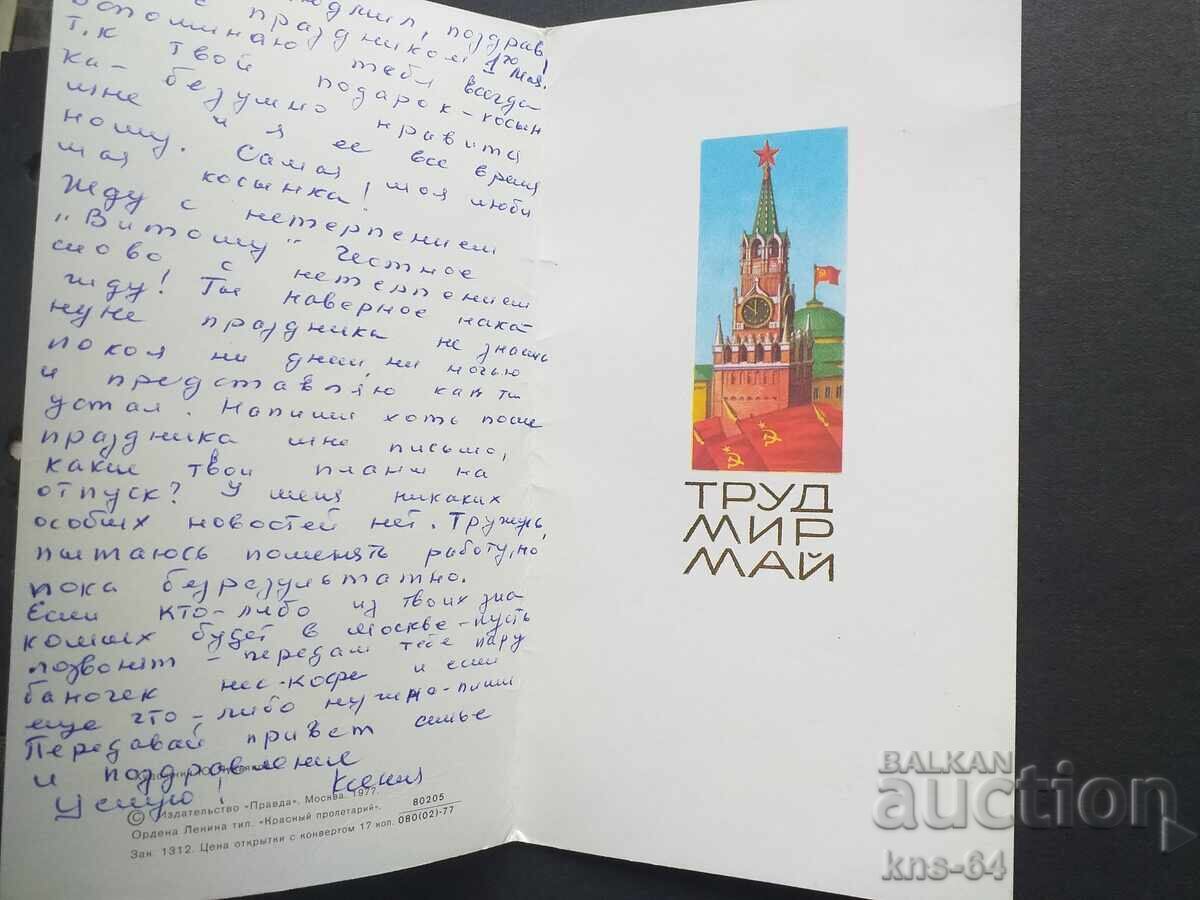 поздрав
с праздником 1го Мая!
Вспоминаю тебя всегда.
Т.к твой подарок-косын
ка- безумно нравится
мне и я ее все время
ношу. Самая моя люби
мая косынка!
Жду с нетерпением
"Витошу" Честное
слово с нетерпением
жду! Ты наверное нака-
нуне праздника не знаешь
покоя ни днем, ни ночью
и представляю как ты
устал. Напиши хоть после
праздника мне письмо,
какие твои планы на
отпуск? У меня никаких
особых новостей нет. Тружусь,
пытаюсь поменять работу, но
пока безрезультатно.
Если кто-либо из твоих зна
комых будет в Москве - пусть
позвонят - передам тебе пару
баночек нес-кофе и если
еще что-либо нужно-пиши
Передавай привет семье
и поздравления
Целую! Ксения
© Издательство «Правда». Москва. 1977.
80205
080(02)-77
Ордена Ленина тип. «Красный пролетарий».
Зак. 1312. Цена открытки с конвертом 17 коп.
ТРУД
МИР
МАЙ
BALKAN
auction
kns-64